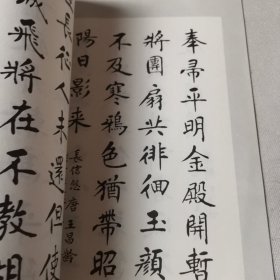 奉帚平明金殿開暫
將團扇共徘徊玉顏
不及寒鴉色猶帶昭
陽日影來 長信怨 唐 王昌齡
長征人未還但使
城飛將在不教胡